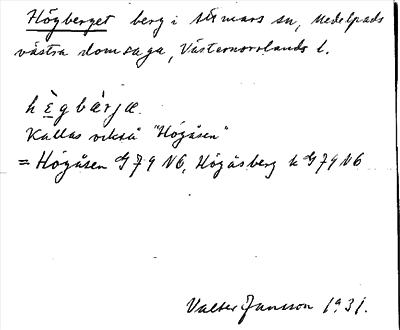 Högberget berg i Stmars sn, Medelpads
västra domsaga, Västernorrlands l.
hègbàrjæ.
Kallas också "Högåsen"
= Högåsen G79 V6, Högåsberg h G79 V6
Valter Jansson 1931.